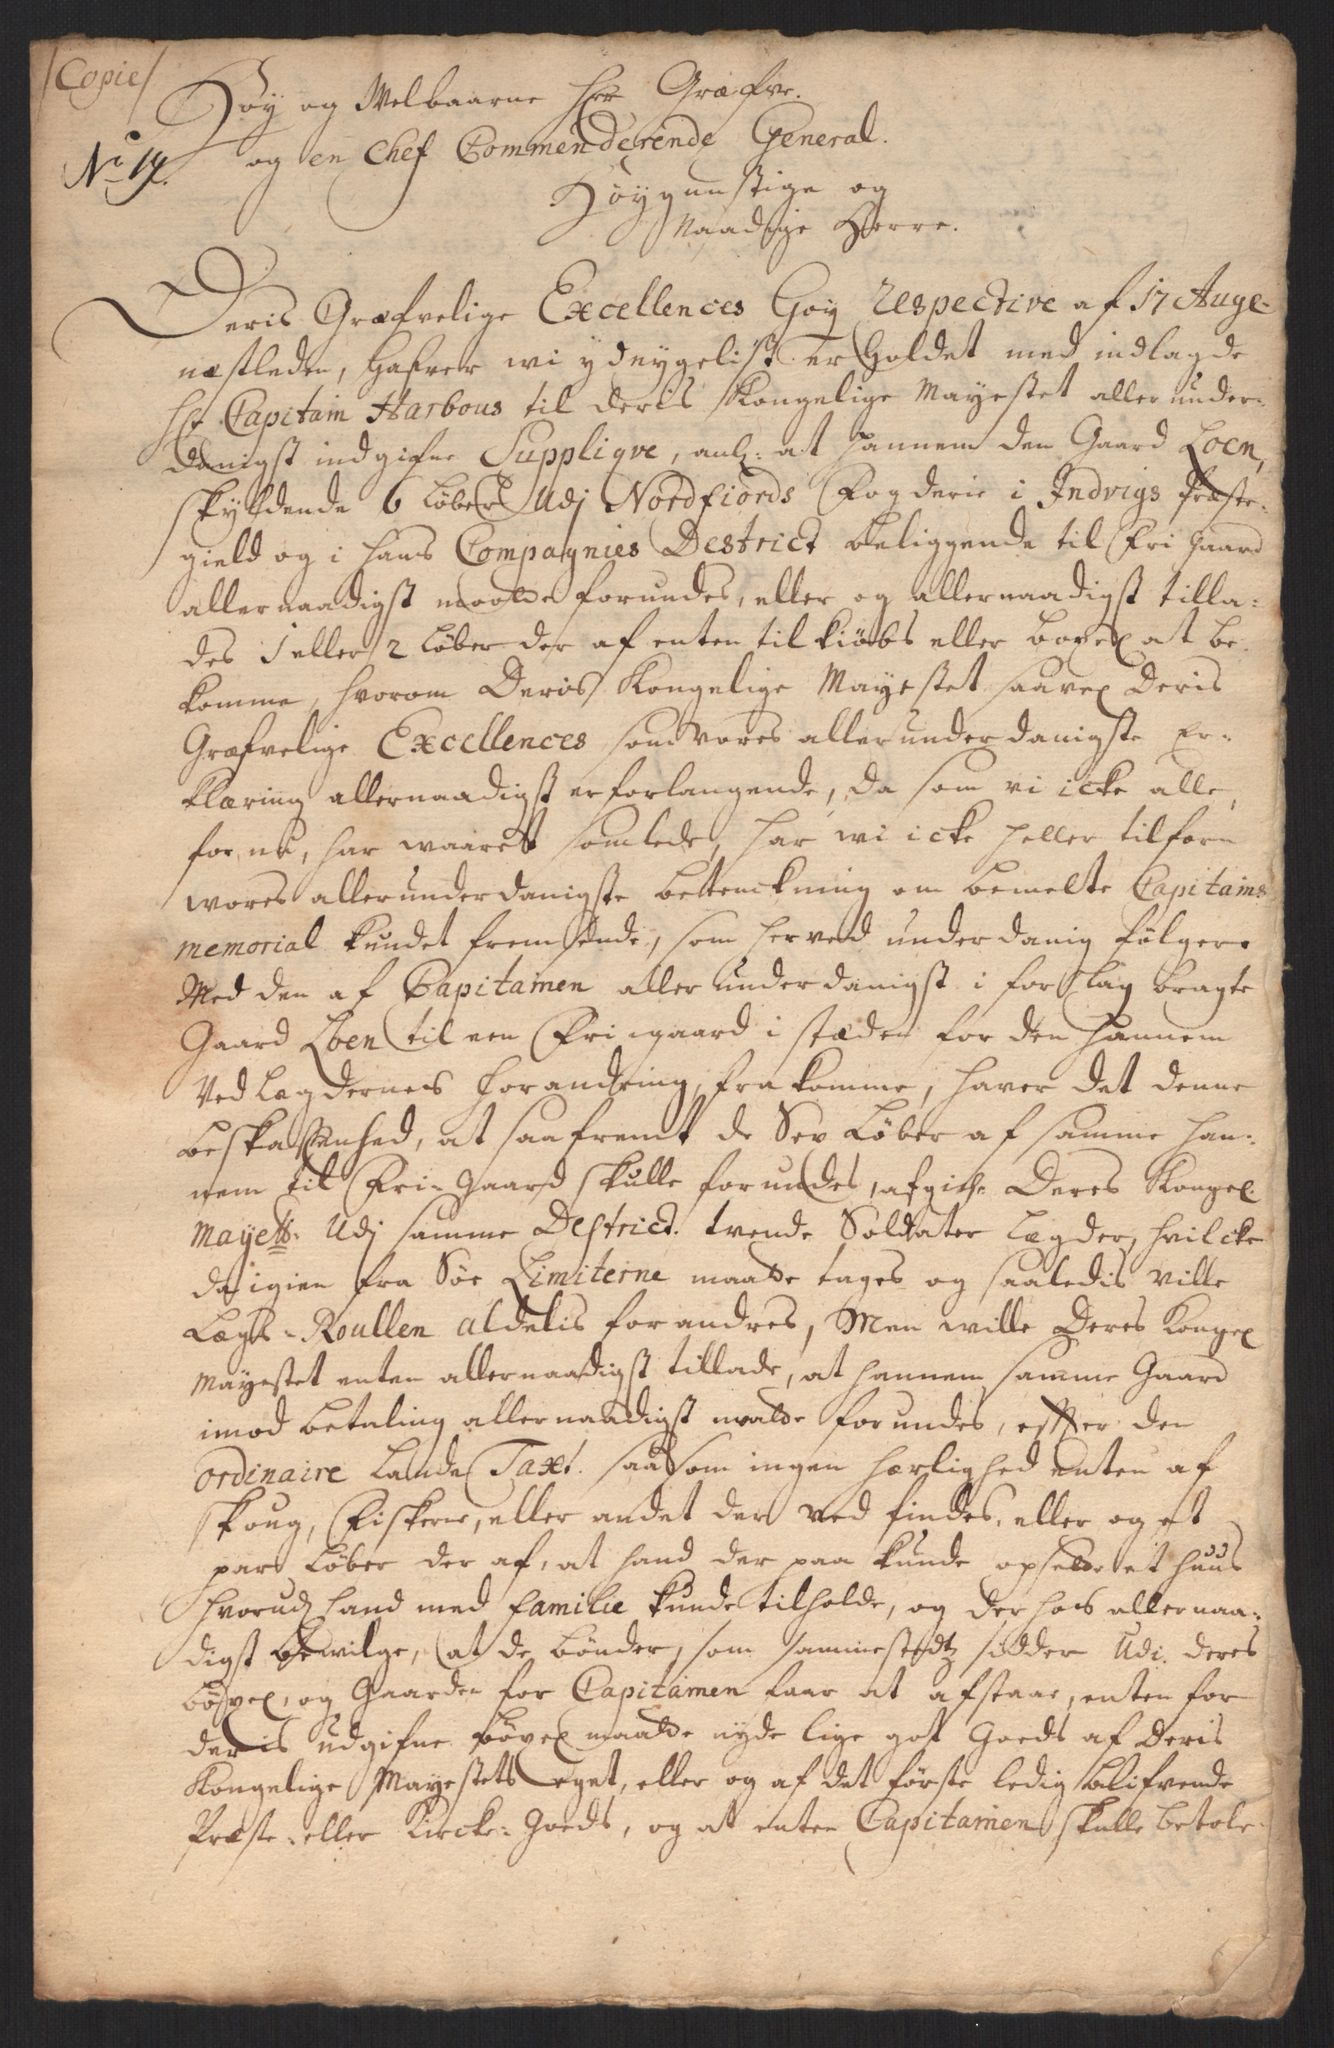 /Copie/
Høy og Welbaarne Herr Græfve.
No 14. og en Chef Commenderende General.
Høygunstige og
Naadige Herre.
Deris Græfvelige Excellences Høy respective af 17 Auge-
næstleden, hafver wi ydmygeligst erholdet med indlagde
Hr Capitain Harbous til deris Kongelige Mayestet allerunder-
danigst indgifne Supplique, anl: at hannem den Gaard Loen,
skyldende 6 Løber Udj Nordfiords Fogderie i Indvigs Præste-
gield og i hans Compagnies Destrict beliggende til Fri Gaard
allernaadigst motte forundes, eller og allernaadigst tilla-
des 1 eller 2 Løber der af enten til kiøbs eller bøxel at be-
komme, hvorom Deris Kongelige Mayestet saavel Deris
Græfvelige Excellences som vores allerunderdanigste Er-
klæring allernaadigst er forlangende, da som vi icke alle,
for nu, har waaret samlede, har wi icke heller tilforn
wores allerunderdanigste betenckning om bemelte Capitains
memorial kundet fremsende, som herved underdanig følger.
Med den af Capitainen allerunderdanigst i forslag bragte
Gaard Loen til een Frigaard i stæden for den hannem
Ved Lægdernes Forandring, frakomme, haver det denne
beskaffenhed, at saafremt de Sex Løber af samme han-
nem til Fri-Gaard skulle forundes, afgich Deres Kongel.
Mayetts. Udj samme Destrict. trende Soldater Lægder, hvilcke
da igien fra Søe Limiterne maatte tages og saaledis ville
Lægds-Roullen aldelis forandres, Men wille Deres Kongel
Mayestet enten allernaadigst tillade, at hannem samme Gaard
imod betaling allernaadigst maatte forundes, efter den
ordinaire Lands Taxt. saasom ingen herlighed enten af
skoug, Fiskerie, eller andet der ved findes, eller og et
pars Løber der af, at hand der paa kunde opsette et huus
hvorudj hand med familie kunde tilholde, og der hos allernaa-
digst bewilge, at de bønder, som sammestedtz sidder Udi deres
bøxel, og Gaarden for Capitainen faar at afstaae, enten for
deris udgifne bøxel maatte nyde lige got Goeds af Deris
Kongelige Mayestets eget, eller og af det første ledig blifvende
Præste- eller Kircke-Goeds, og at enten Capitainen skulle betale-